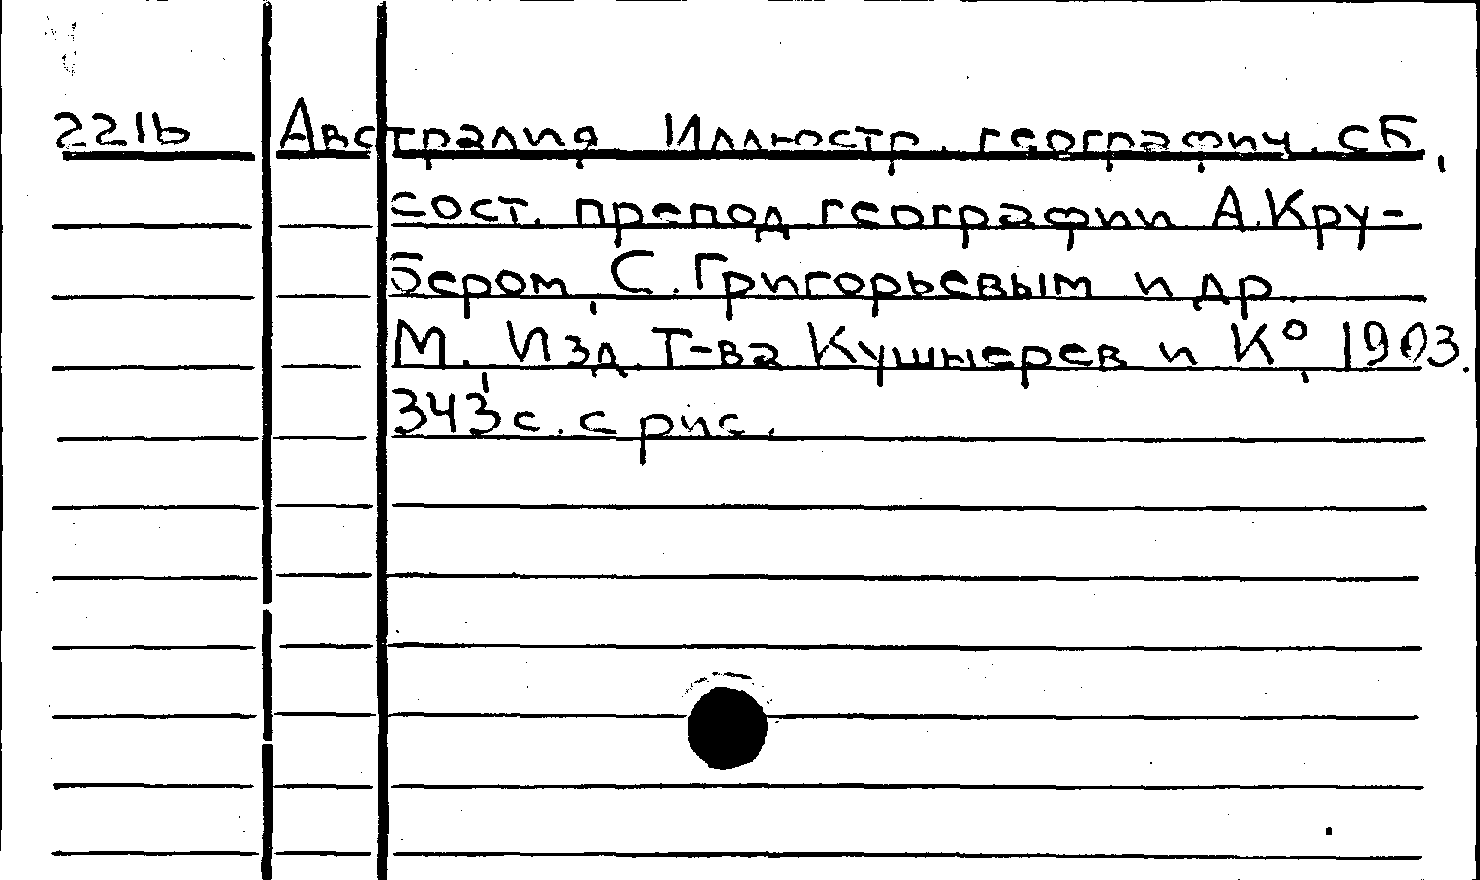 221b Австралия, Иллюстр. географич. сб.,
сост. препод географии А.Кру-
бером, С.Григорьевым и др.
М., Изд. Т-ва Кушнерев и К°, 1903.
343 с. с рис.